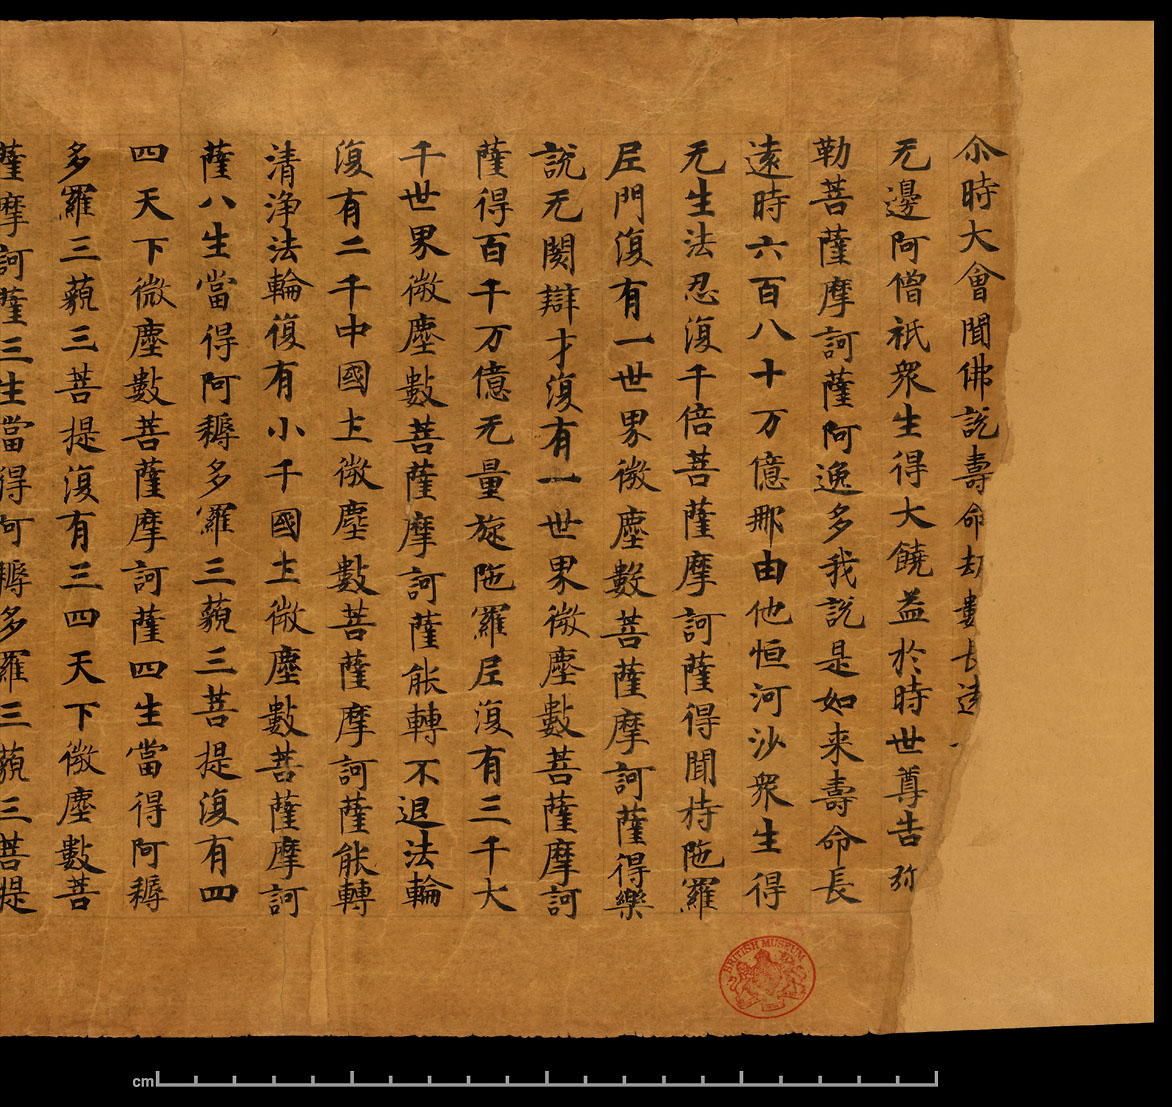 尒時大會聞佛説壽命劫數長遠
无邊阿僧祇衆生得大饒益於時世尊告弥
勒菩薩摩訶薩阿逸多我説是如来壽命長
遠時六百八十万億那由他恒河沙衆生得
无生法忍復千倍菩薩摩訶薩得聞持陁羅
尼門復有一世界微塵數菩薩摩訶薩得樂
説无閡辯才復有一世界微塵數菩薩摩訶
薩得百千万億无量旋陁羅尼復有三千大
千世界微塵數菩薩摩訶薩能轉不退法輪
復有二千中國土微塵數菩薩摩訶薩能轉
清淨法輪復有小千國土微塵數菩薩摩訶
薩八生當得阿耨多羅三藐三菩提復有四
四天下微塵數菩薩摩訶薩四生當得阿耨
多羅三藐三菩提復有三四天下微塵數菩
薩摩訶薩三生當得阿耨多羅三藐三菩提
BRITISH MUSEUM
cm